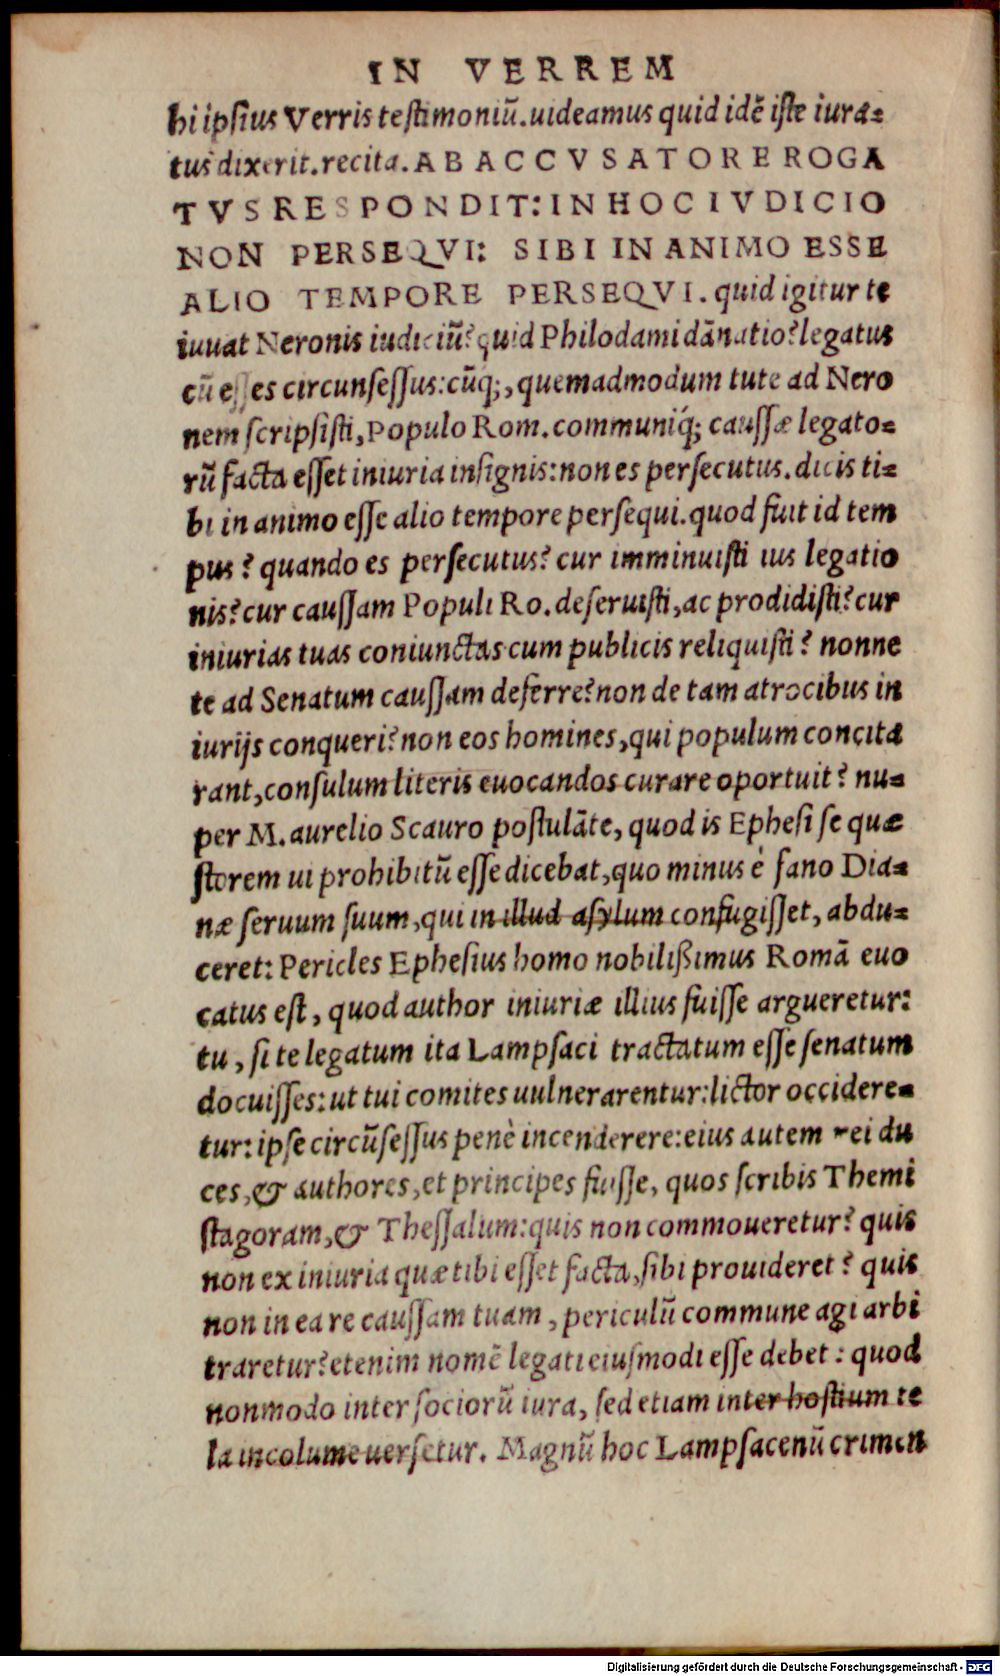 IN VERREM
hi ipsius Verris testimoniũ. uideamus quid idẽ iste iura=
tus dixerit. recita. AB ACCVSATORE ROGA
TVS RESPONDIT: IN HOC IVDICIO
NON PERSEQVI: SIBI IN ANIMO ESSE
ALIO TEMPORE PERSEQVI. quid igitur te
iuuat Neronis iudiciũ? quid Philodami dãnatio? legatus
cũ esses circunsessus: cũq;, quemadmodum tute ad Nero
nem scripsisti, Populo Rom. communiq́; caussæ legato=
rũ facta esset iniuria insignis: non es persecutus. dicis ti=
bi in animo esse alio tempore persequi. quod fuit id tem
pus? quando es persecutus? cur imminuisti ius legatio
nis? cur caussam Populi Ro. deseruisti, ac prodidisti? cur
iniurias tuas coniunctas cum publicis reliquisti? nonne
te ad Senatum caussam deferre? non de tam atrocibus in
iurijs conqueri? non eos homines, qui populum concita
rant, consulum literis euocandos curare oportuit? nu=
per M. aurelio Scauro postulãte, quod is Ephesi se quæ
storem ui prohibitũ esse dicebat, quo minus è fano Dia=
næ seruum suum, qui in illud asylum confugisset, abdu=
ceret: Pericles Ephesius homo nobilißimus Romã euo
catus est, quod author iniuriæ illius fuisse argueretur:
tu, si te legatum ita Lampsaci tractatum esse senatum
docuisses: ut tui comites uulnerarentur: lictor occidere=
tur: ipse circũsessus penè incenderere: eius autem rei du
ces, & authores, et principes fuisse, quos scribis Themi
stagoram, & Thessalum: quis non commoueretur? quis
non ex iniuria quæ tibi esset facta, sibi prouideret? quis
non in ea re caussam tuam, periculũ commune agi arbi
traretur? etenim nomẽ legati eiusmodi esse debet: quod
nonmodo inter sociorũ iura, sed etiam inter hostium te
la incolume uersetur. Magnũ hoc Lampsacenũ crimen
Digitalisierung gefördert durch die Deutsche Forschungsgemeinschaft - DFG